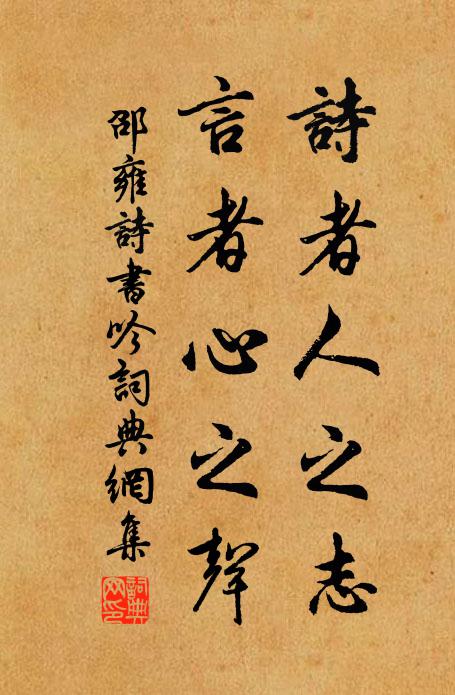 詩者人之志
言者心之聲
邵雍詩書吟詞典網集
詞典網印